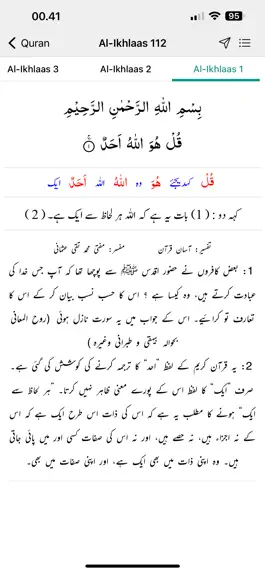 00.41 95
Quran Al-Ikhlaas 112
Al-Ikhlaas 3 Al-Ikhlaas 2 Al-Ikhlaas 1
بِسْمِ اللّٰهِ الرَّحْمٰنِ الرَّحِيْمِ
قُلْ هُوَ اللّٰهُ اَحَدٌ ۚ ۝۱
قُلْ کہدیجئے هُوَ وہ اللّٰهُ اللہ اَحَدٌ ایک
کہہ دو : (1) بات یہ ہے کہ اللہ ہر لحاظ سے ایک ہے۔ (2)
تفسیر: آسان قرآن مفسر: مفتی محمد تقی عثمانی
1: بعض کافروں نے حضور اقدس ﷺ سے پوچھا تھا کہ آپ جس خدا کی
عبادت کرتے ہیں، وہ کیسا ہے ؟ اس کا حسب نسب بیان کر کے اس کا
تعارف تو کرائیے۔ اس کے جواب میں یہ سورت نازل ہوئی (روح المعانی
بحوالہ بیہقی و طبرانی وغیرہ)
2: یہ قرآن کریم کے لفظ ”احد“ کا ترجمہ کرنے کی کوشش کی گئی ہے۔
صرف ”ایک“ کا لفظ اس کے پورے معنی ظاہر نہیں کرتا۔ ”ہر لحاظ سے
ایک“ ہونے کا مطلب یہ ہے کہ اس کی ذات اس طرح ایک ہے کہ اس
کے نہ اجزاء ہیں، نہ حصے ہیں، اور نہ اس کی صفات کسی اور میں پائی جاتی
ہیں۔ وہ اپنی ذات میں بھی ایک ہے، اور اپنی صفات میں بھی۔